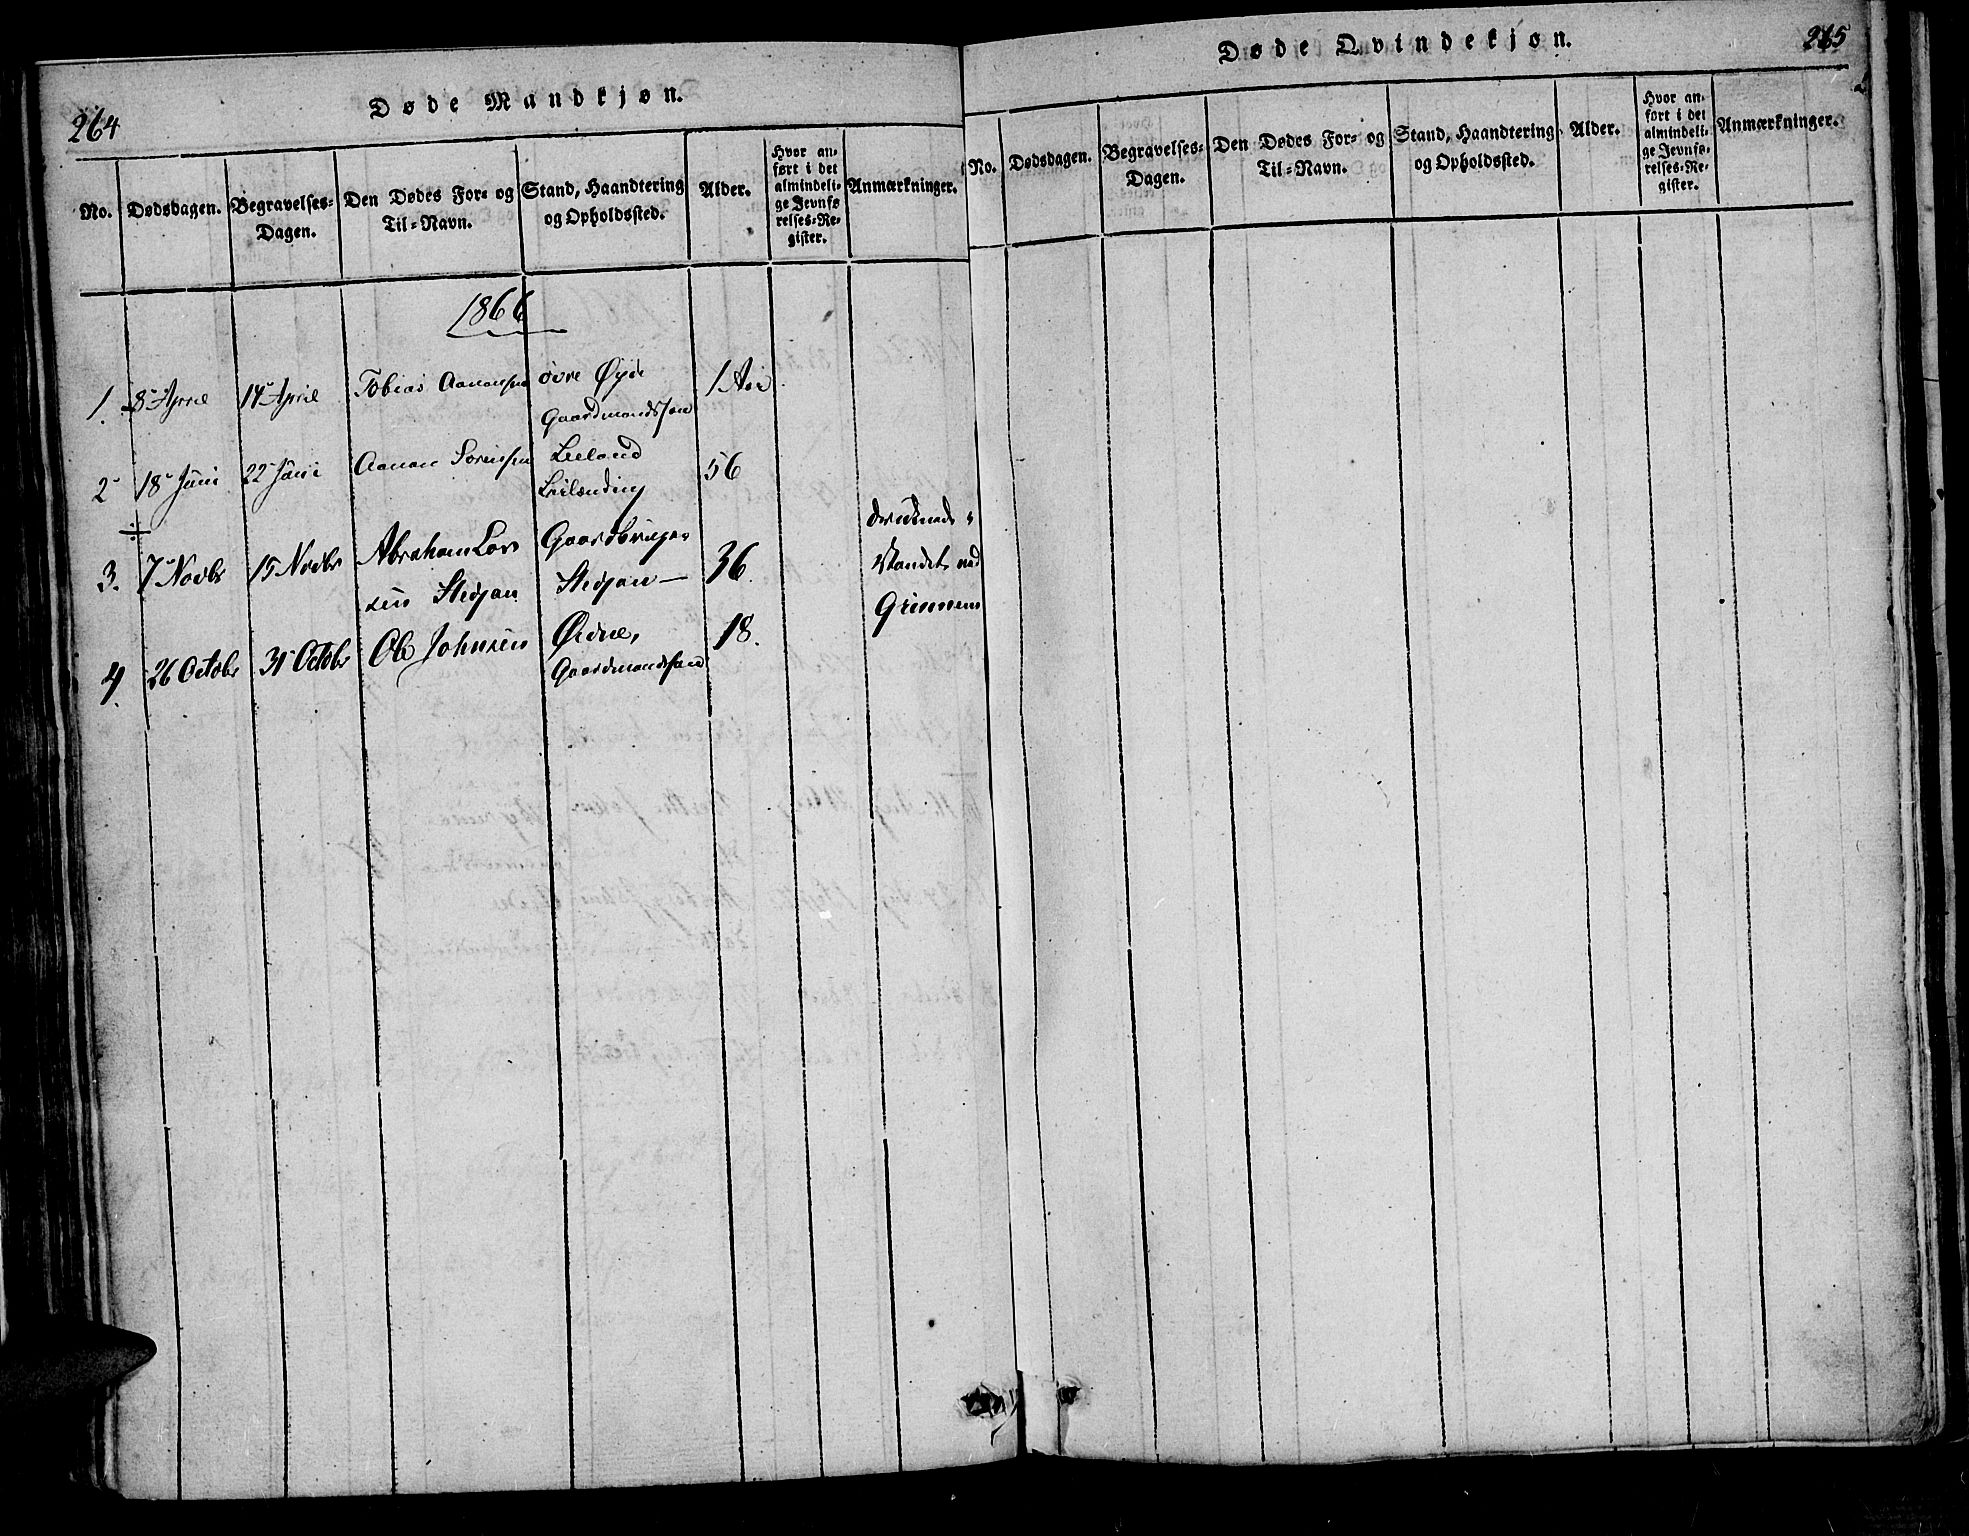 264
Døde Mandkjøn.
No. Dødsdagen. Begravelses-Dagen. Den Dødes For- og Til-Navn. Stand, Haandtering og Opholdssted. Alder. Hvor anført i det almindelige Jevnførelses-Register. Anmærkninger.
1866
1. 8 April 14 April Tobias Aanensen øvre Øyde 1 Aar
Gaardmandssøn
2 18 Juni 22 Juni Aanon Sørensen Leeland 56
Leilænding
3. 7 Novbr 15 Novbr Abraham Lar Gaardbruger 36. druknede i
sen Stedjan Stedjan Vandet ved
Grimnem
4. 26 Octobr 31 Octobr Ole Johnsen Øidne, 18.
Gaardmandssøn
265
Døde Qvindekjøn.
No. Dødsdagen. Begravelses-Dagen. Den Dødes For- og Til-Navn. Stand, Haandtering og Opholdssted. Alder. Hvor anført i det almindelige Jevnførelses-Register. Anmærkninger.